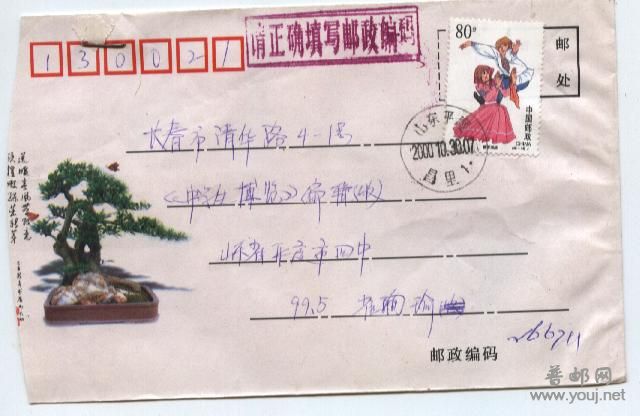 请正确填写邮政编码
130021
80分
中国邮政
CHINA
邮
处
山东平
2000.10.30.07
昌里
长春市清华路4-1号
《中外博览》编辑(收)
山东省平度市四中
99.5
邮政编码
266711
普邮网
www.youj.net